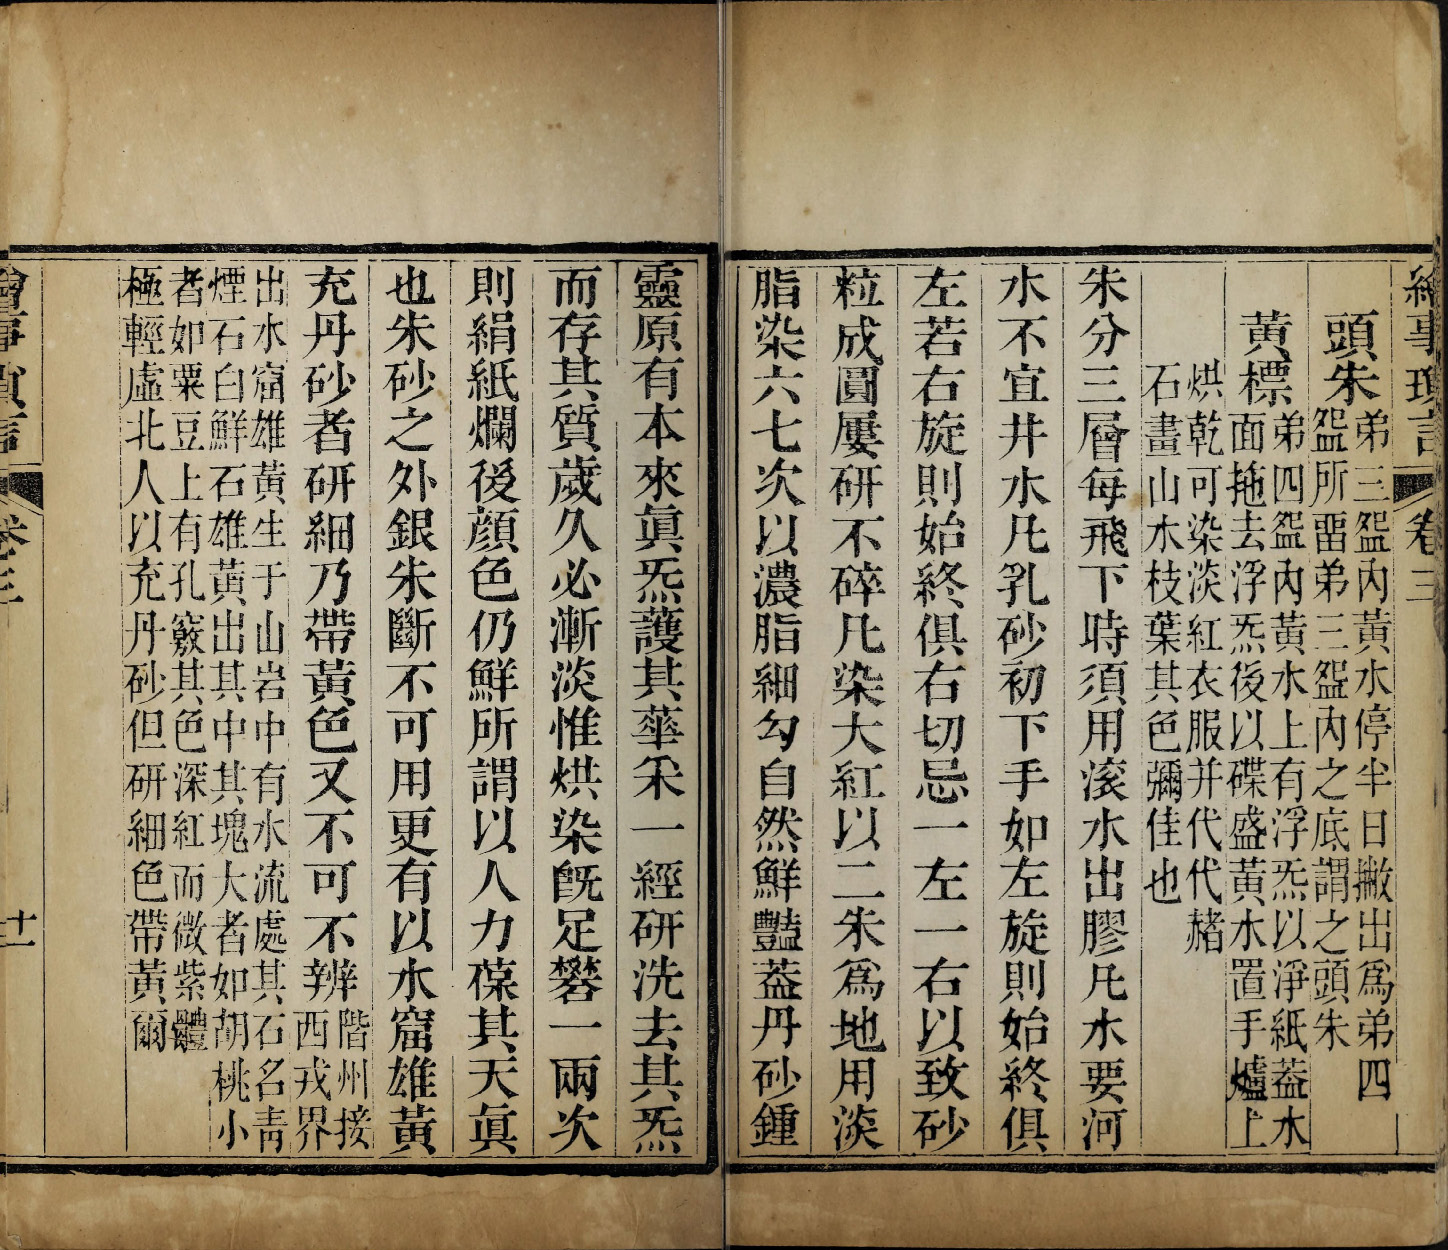 繪事瑣言 卷三
頭朱
弟三盌內黃水停半日撇出爲弟四
盌所畱弟三盌內之底謂之頭朱
黃標
弟四盌內黃水上有浮炁以淨紙蓋水
面拖去浮炁後以碟盛黃水置手爐上
烘乾可染淡紅衣服并代代赭
石畫山水枝葉其色彌佳也
朱分三層每飛下時須用滚水出膠凡水要河
水不宜井水凡乳砂初下手如左旋則始終俱
左若右旋則始終俱右切忌一左一右以致砂
粒成圓屢研不碎凡染大紅以二朱爲地用淡
脂染六七次以濃脂細勾自然鮮豔葢丹砂鍾
靈原有本來眞炁護其華采一經研洗去其炁
而存其質歲久必漸淡惟烘染旣足礬一兩次
則絹紙爛後顔色仍鮮所謂以人力葆其天眞
也朱砂之外銀朱斷不可用更有以水窟雄黃
充丹砂者研細乃帶黃色又不可不辨
階州接
西戎界
出水窟雄黃生于山岩中有水流處其石名靑
煙石白鮮石雄黃出其中其塊大者如胡桃小
者如粟豆上有孔竅其色深紅而微紫體
極輕虛北人以充丹砂但硏細色帶黃爾
繪事瑣言 卷三 十一